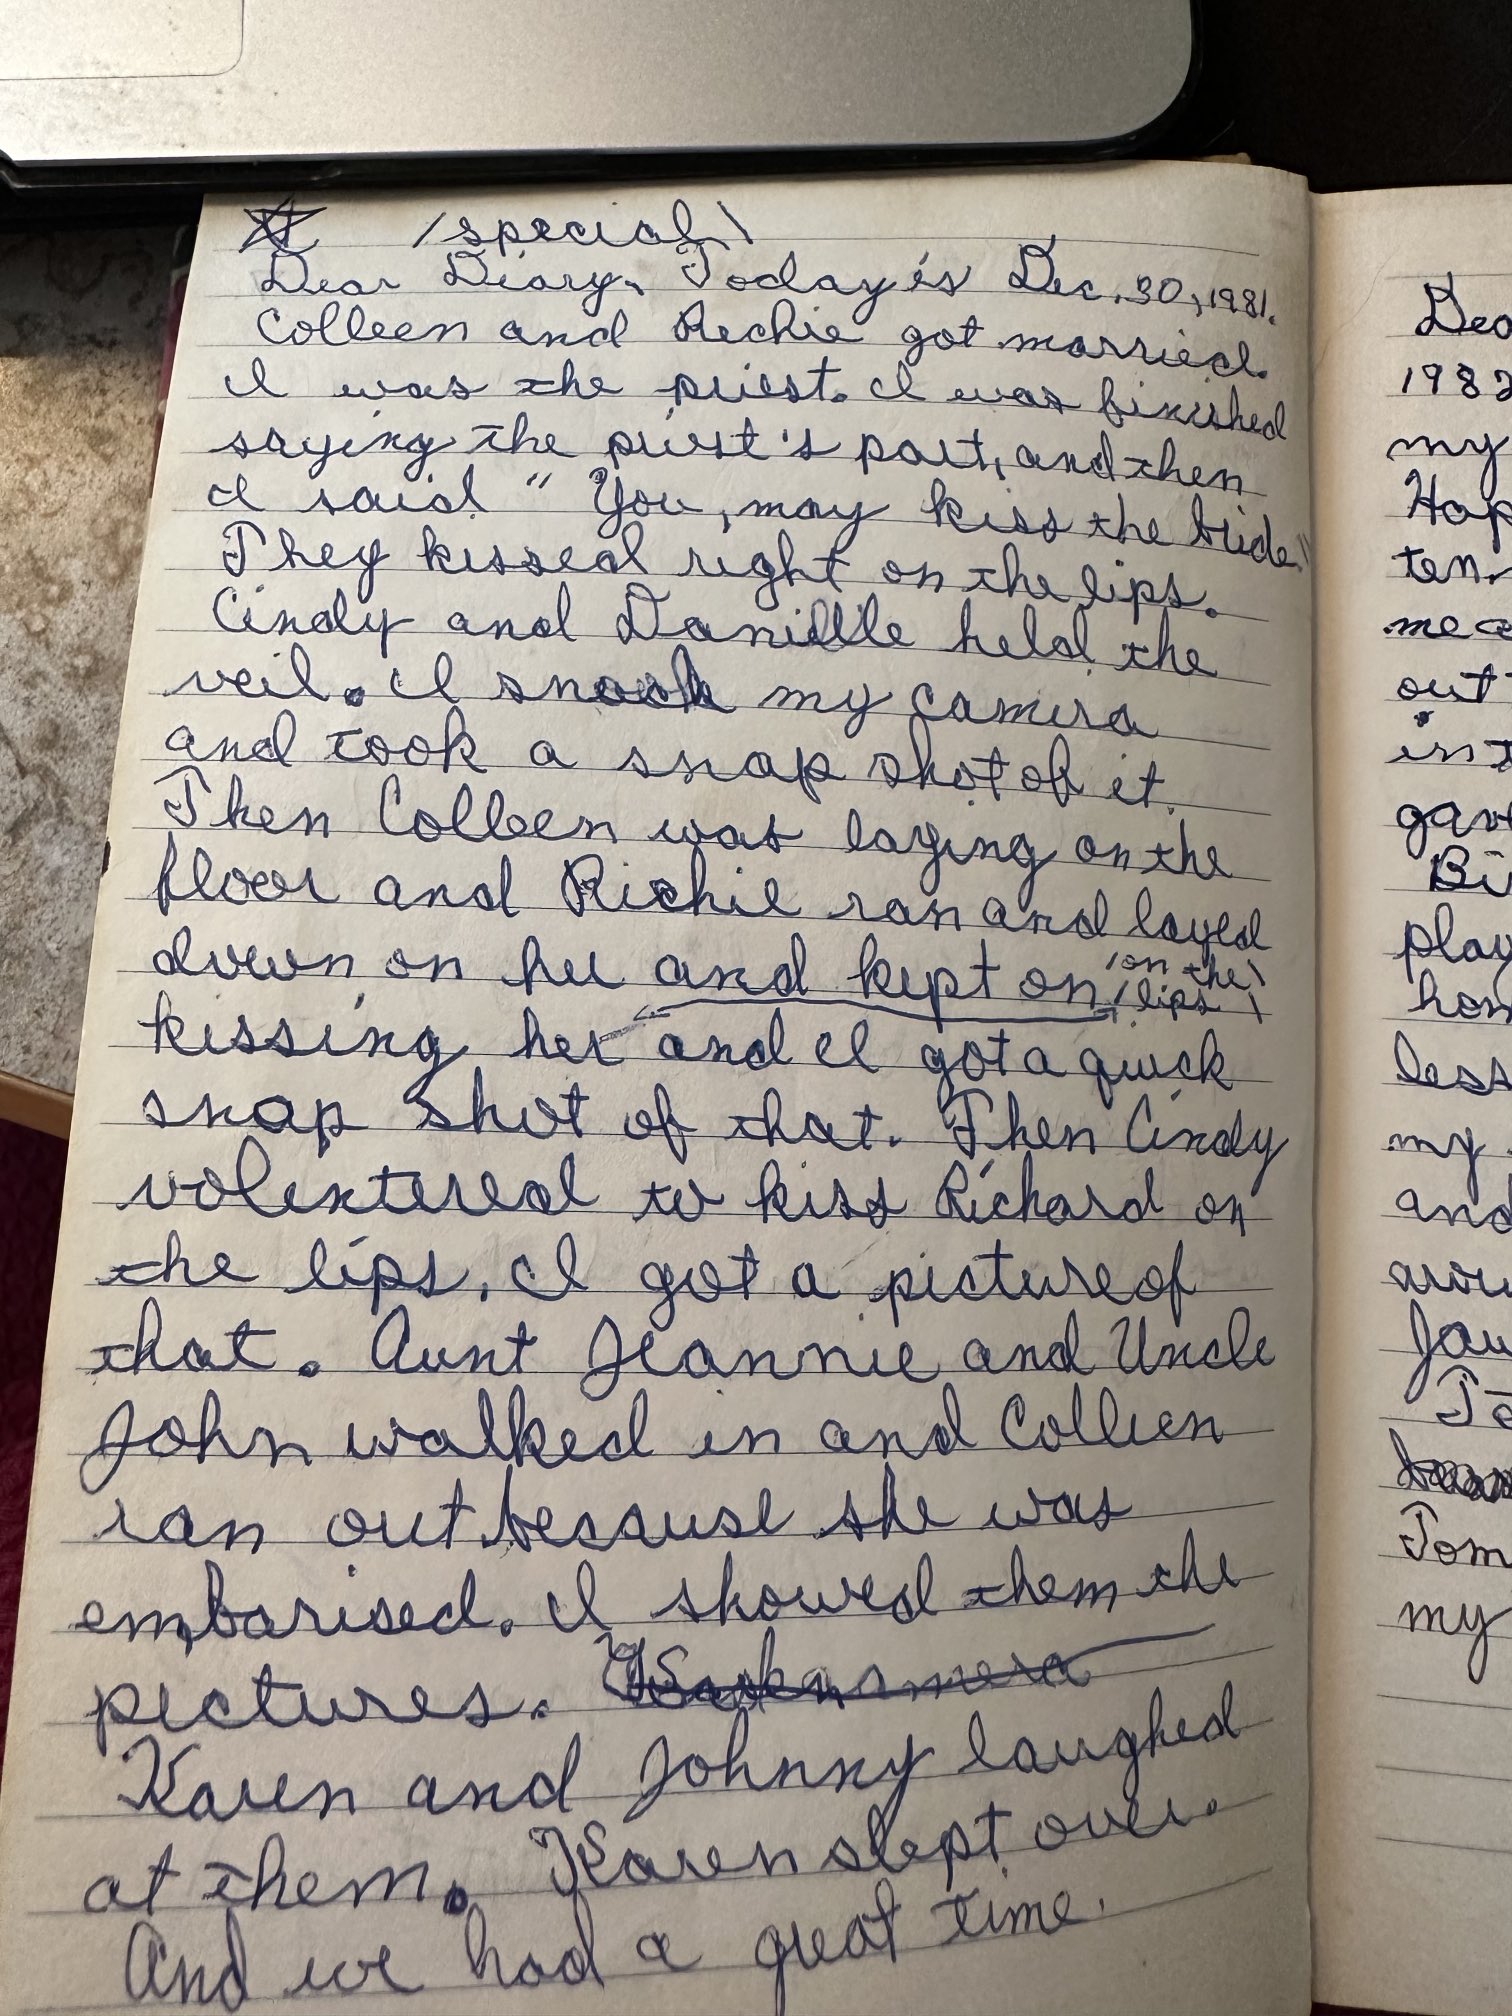 /special\
Dear Diary, Today is Dec. 30, 1981.
Colleen and Richie got married.
I was the priest. I was finished
saying the priest's part, and then
I said "You, may kiss the bride."
They kissed right on the lips.
Cindy and Danielle held the
veil. I snook my camera
and took a snap shot of it.
Then Colleen was laying on the
floor and Richie ran and layed
down on her and kept on /on the\
/lips\
kissing her and I got a quick
snap shot of that. Then Cindy
volentered to kiss Richard on
the lips. I got a picture of
that. Aunt Jeannie and Uncle
John walked in and Colleen
ran out because she was
embarised. I showed them the
pictures.
Karen and Johnny laughed
at them. Karen slept over.
And we had a great time.
Dea
1982
my
Hap
ten.
me a
out
in t
gave
Bi
play
hom
less
my
and
arou
Jan
To
Tom
my